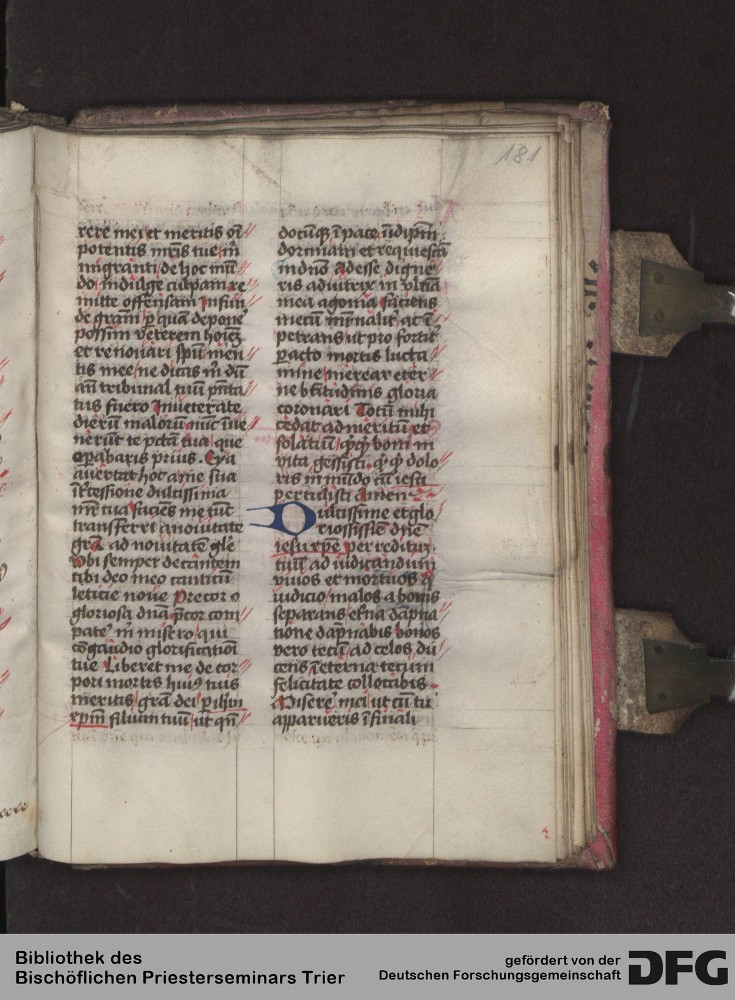 181
rere mei et meritis oī
potentis mr̄is tue m̄
migranti de hoc mūdo
do indulge culpam re
mitte offensam Infun
de grām p quā depone
possim veterem hoīez
et renouari sp̄u men
tis mee ne dicas m̄ dū
an̄ tribunal tuū pn̄ta
tus fuero Inueterate
dierū malorū nūc īue
nerūt te pctā tua que
opabaris prius. Eya
auertat hoc a me sua
īt'cessione dulcissima
mr̄ tua facies me tūc
transferri a noūitate
grā ad nouitatē gle
vbi semper decantem
tibi deo meo canticū
leticie noue Precor o
gloriosa dn̄a pctor com
pate m̄ misero qui
cōgaudio glorificationi
tue Liberet me de cor
pori mortis huiꝰ tuis
meritis grā dei p ihm
xpm̄ filium tuū ut qn̄
dormiam et requiescā
in dn̄o Adesse digne
ris adiutrix in vltīa
mea agonia faciens
mecū
petrans ut pro fortit'
pacto mortis lucta
mine merear eter
ne btītudinis gloria
coronari Totū mihi
cedat ad meritū et
solatiū qͥcqͥd boni in
vita gessisti qͥcqͥd dolo
ris in mūdo cū iesu
pertulisti Amen
Dulcissime et glo
riosissie dn̄e
iesu xpe per reditū
tuū ad iudicandum
viuos et mortuos qͥ
iudicio malos a bonis
separans et̄na dāpna
tione dāpnabis bonos
vero tecū ad celos du
cens ī eterna tecum
felicitate collocabis
Misere mei ut cū tu
apparueris ī finali
Bibliothek des
Bischöflichen Priesterseminars Trier
gefördert von der
Deutschen Forschungsgemeinschaft
DFG